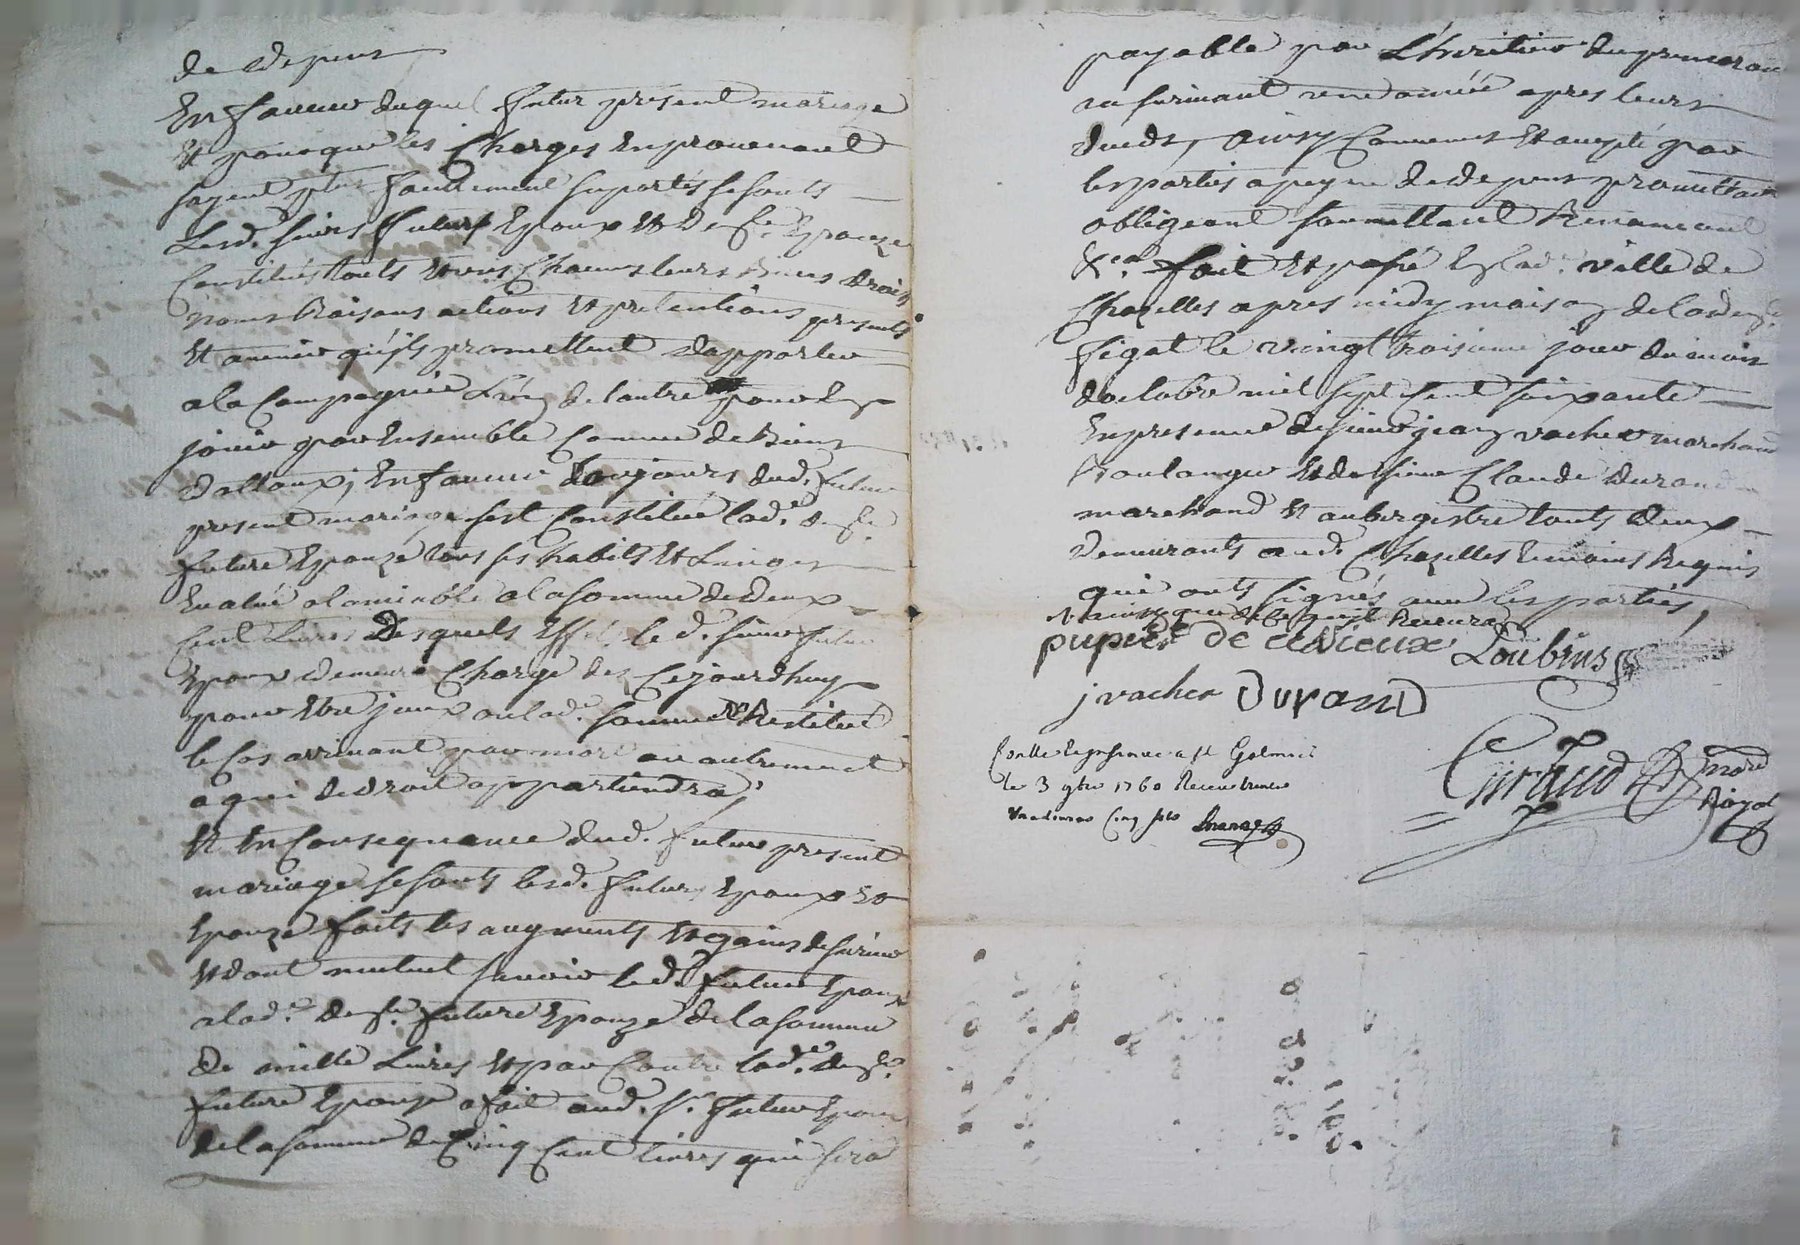 de dépens
En faveur duquel futur présent mariage
Et pour que les Charges en provenant
soyent plus facilement suportés se sonts
Lesd. sieurs futurs Epoux Et De.lle Epouze
Constitués touts Et uns Chacuns leurs Biens droits
noms Raisons actions Et prétentions présents
Et avenir qu'ils promettent d'apporter
a la Compagnie L'un de l'autre pour En
jouir par Ensemble Comme de Biens
dottaux, En faveur toujours dud. futur
present mariage s'est Constitué lad.e De.lle
future Epouze tous ses habits Et Linges
Evalué alamiable a la somme de deux
Cent Livres Desquels Eff. le d. sieur futur
Epoux demeure Chargé des Cejourdhuy
pour Etre jceux ou lad.e somme Restitué
le Cas arrivant par mort ou autrement
a qui de droit appartiendra,
Et En Consequance dud. futur present
mariage se sonts lesd. futurs Epoux Et
Epouze faits les augments Et gains de survie
Et dont mutuel sçavoir le d. futur Epoux
a lad.e De.lle future Epouze de la somme
de mille Livres Et par Contre lad.e De.lle
future Epouze a fait aud. S.r futur Epoux
de la somme de Cinq Cent livres qui sera
payable par L'heritier du premourant
au survivant une année apres leurs
deceds, ainsy Convenus Et accepté par
les parties a peyne de dépens promettant
obligeant soumettant Renonceant
&ca. fait Et passé En lad.e ville de
Chazelles apres midy maison de lad. De.lle
figat le vingt troisieme jour du mois
doctobre mil sept Cent soixante
En presence de sieur jean vacher marchand
Boulanger Et de sieur Claude durand
marchand Et aubergistre touts deux
demeurants aud. Chazelles temoins Requis
qui onts signés avec les parties,
pupier de Loubins
j vacher Durand
le 3 9bre 1760 Receu
Cinq sols
Giraud Royal